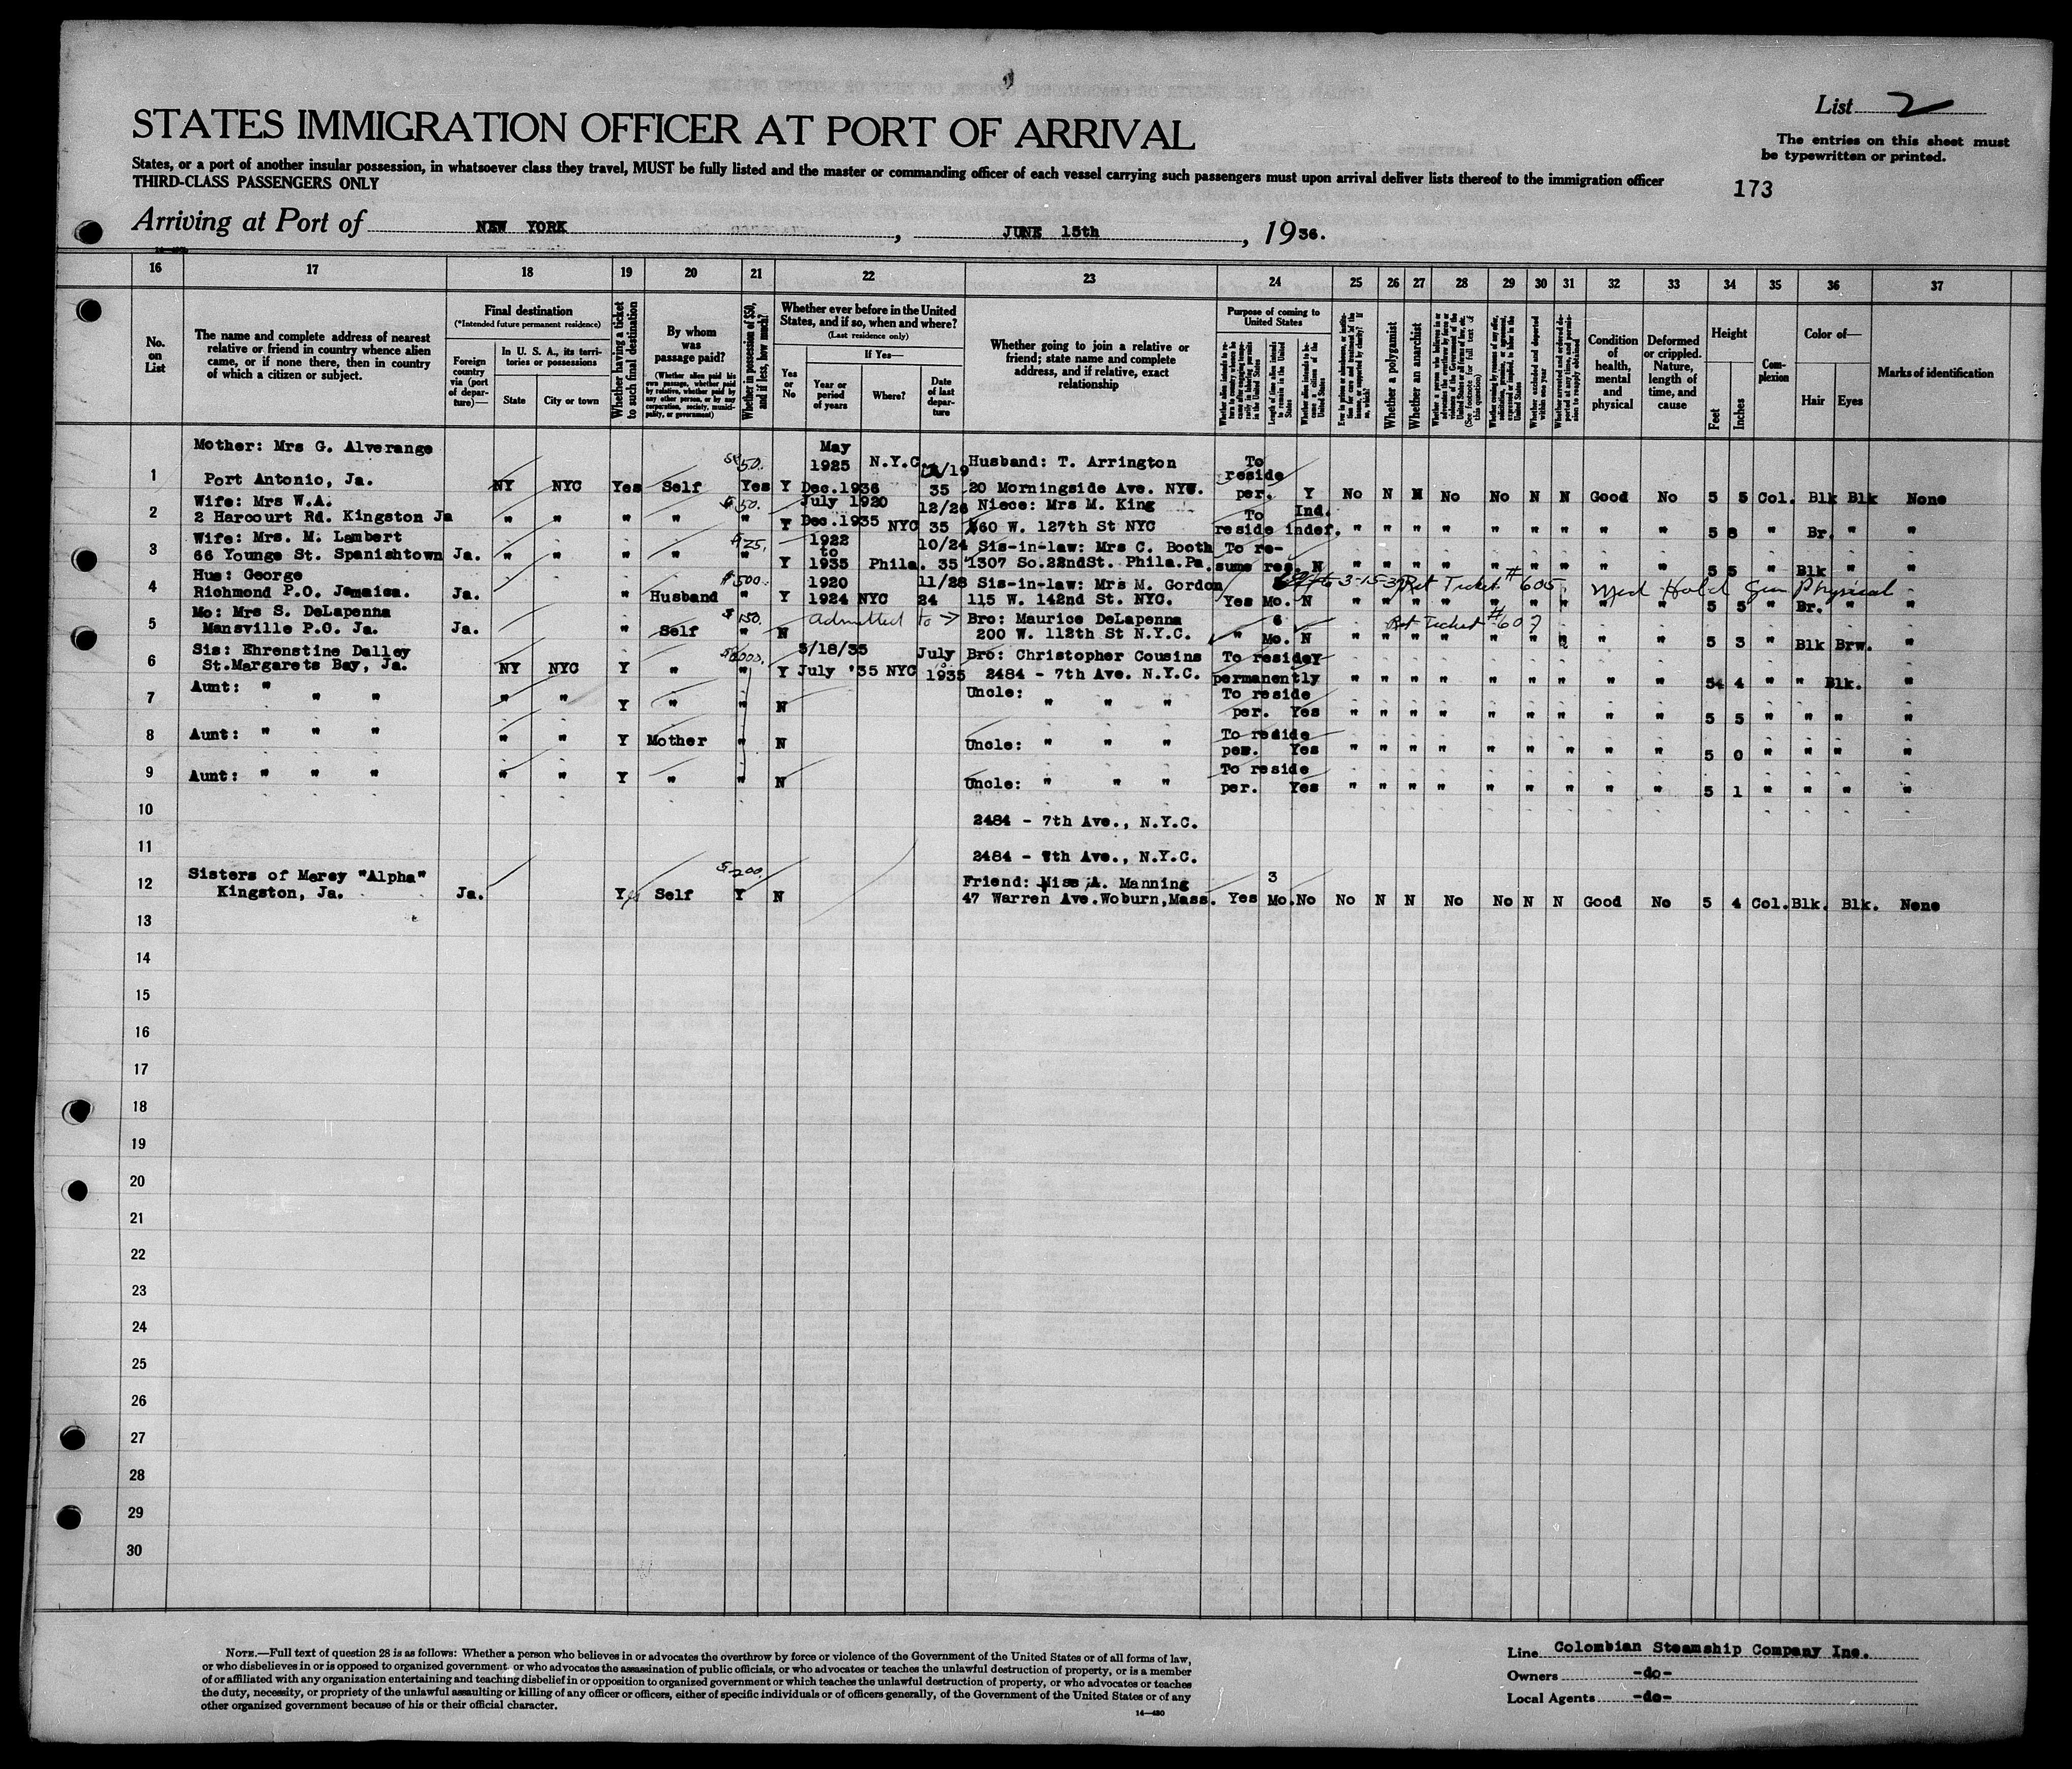 List 2
STATES IMMIGRATION OFFICER AT PORT OF ARRIVAL
The entries on this sheet must
be typewritten or printed.
States, or a port of another insular possession, in whatsoever class they travel, MUST be fully listed and the master or commanding officer of each vessel carrying such passengers must upon arrival deliver lists thereof to the immigration officer
THIRD-CLASS PASSENGERS ONLY
173
Arriving at Port of NEW YORK, JUNE 15th, 1936.
16 17 18 19 20 21 22 23 24 25 26 27 28 29 30 31 32 33 34 35 36 37
No. on List
The name and complete address of nearest relative or friend in country whence alien came, or if none there, then in country of which a citizen or subject.
Final destination
(*Intended future permanent residence)
Foreign country via (port of departure)—
In U. S. A., its territories or possessions
State
City or town
Whether having a ticket to such final destination
By whom was passage paid?
(Whether alien paid his own passage, whether paid by relative, whether paid by any other person, or by any corporation, society, municipality, or government)
Whether in possession of $50, and if less, how much?
Whether ever before in the United States, and if so, when and where?
(Last residence only)
Yes or No
If Yes—
Year or period of years
Where?
Date of last departure
Whether going to join a relative or friend; state name and complete address, and if relative, exact relationship
Purpose of coming to United States
Length of time alien intends to remain in the United States
Whether alien intends to become a citizen of the United States
Whether a polygamist
Whether an anarchist
(See footnote for full text of this question)
Whether excluded and deported within one year
Condition of health, mental and physical
Deformed or crippled. Nature, length of time, and cause
Height
Feet
Inches
Complexion
Color of—
Hair
Eyes
Marks of identification
Mother: Mrs G. Alverange May
1925 N.Y.C. Husband: T. Arrington To
1 Port Antonio, Ja. NY NYC Yes Self Yes 50. Y Dec.1936 35 20 Morningside Ave. NYC. reside per. Y No N N No No N N Good No 5 5 Col. Blk Blk None
2 Wife: Mrs W.A. $50. July 1920 12/26 Niece: Mrs M. King To Ind.
2 Harcourt Rd. Kingston Ja " " " " " Y Dec.1935 NYC 35 260 W. 127th St NYC reside indef. " " " " " " " " " 5 8 " Br. " "
3 Wife: Mrs. M. Lambert $25. 1922 to 10/24 Sis-in-law: Mrs C. Booth To re-
66 Younge St. Spanishtown Ja. " " " " " Y 1935 Phila. 35 1307 So.22ndSt. Phila.Pa. sume res. N " " " " " " " " " 5 5 " Blk " "
4 Hus: George $500. 1920 11/28 Sis-in-law: Mrs M. Gordon 3-15-37 Ret Ticket #605 Med Hold Gen Physical
Richmond P.O. Jamaica. Ja. " Husband " Y 1924 NYC 24 115 W. 142nd St. NYC. Yes Mo. N " " " " " " " " " 5 5 " Br. " "
5 Mo: Mrs S. DeLapenna $150. admitted to → Bro: Maurice DeLapenna 6 Ret Ticket #607
Mansville P.O. Ja. Ja. " Self " N 200 W. 112th St N.Y.C. " Mo. N " " " " " " " " " 5 3 " Blk Brw. "
6 Sis: Ehrenstine Dalley $6000. 3/18/35 July Bro: Christopher Cousins To reside Y
St.Margarets Bay, Ja. NY NYC Y " " Y July '35 NYC 1935 2484 - 7th Ave. N.Y.C. permanently " " " " " " " " " 5 4 " " Blk. "
7 Aunt: " " " " " Y " " N Uncle: " " " To reside per. Yes " " " " " " " " " 5 5 " " " "
8 Aunt: " " " " " Y Mother " N Uncle: " " " To reside per. Yes " " " " " " " " " 5 0 " " " "
9 Aunt: " " " " " Y " " N Uncle: " " " To reside per. Yes " " " " " " " " " 5 1 " " " "
10 2484 - 7th Ave., N.Y.C.
11 2484 - 7th Ave., N.Y.C.
12 Sisters of Mercy "Alpha" $200. Friend: Miss A. Manning 3
Kingston, Ja. Ja. Y Self Y N 47 Warren Ave.Woburn,Mass. Yes Mo. No No N N No No N N Good No 5 4 Col. Blk. Blk. None
13
14
15
16
17
18
19
20
21
22
23
24
25
26
27
28
29
30
NOTE.—Full text of question 28 is as follows: Whether a person who believes in or advocates the overthrow by force or violence of the Government of the United States or of all forms of law,
or who disbelieves in or is opposed to organized government, or who advocates the assassination of public officials, or who advocates or teaches the unlawful destruction of property, or is a member
of or affiliated with any organization entertaining and teaching disbelief in or opposition to organized government or which teaches the unlawful destruction of property, or who advocates or teaches
the duty, necessity, or propriety of the unlawful assaulting or killing of any officer or officers, either of specific individuals or of officers generally, of the Government of the United States or of any
other organized government because of his or their official character.
14—480
Line Colombian Steamship Company Inc.
Owners -do-
Local Agents -do-